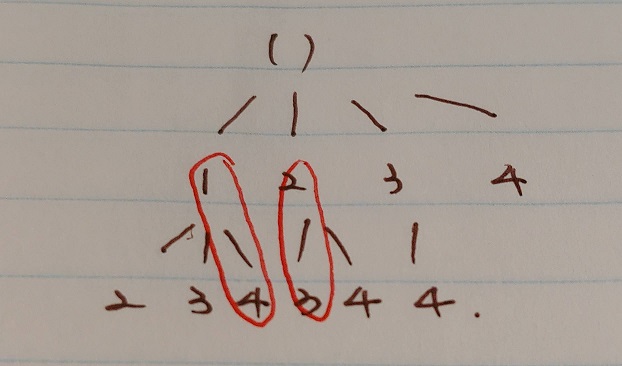 ()
1 2 3 4
2 3 4 3 4 4.